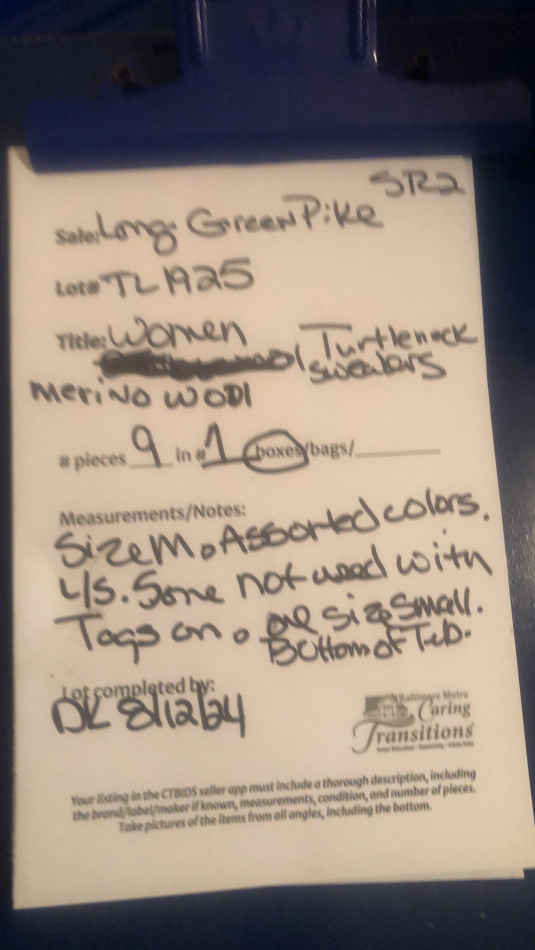 SR2
Sale: Long Green Pike
Lot# TL 1925
Title: Women
Turtleneck
sweaters
Merino wool
# pieces 9 in # 1 boxes/bags/
Measurements/Notes:
Size M. Assorted colors.
L/S. Some not used with
Tags on. one size small.
Bottom of
Lot completed by:
DK 8/12/24
Baltimore Metro
Caring
Transitions
Your listing in the CTBIDS seller app must include a thorough description, including
the brand/label/maker if known, measurements, condition, and number of pieces.
Take pictures of the items from all angles, including the bottom.